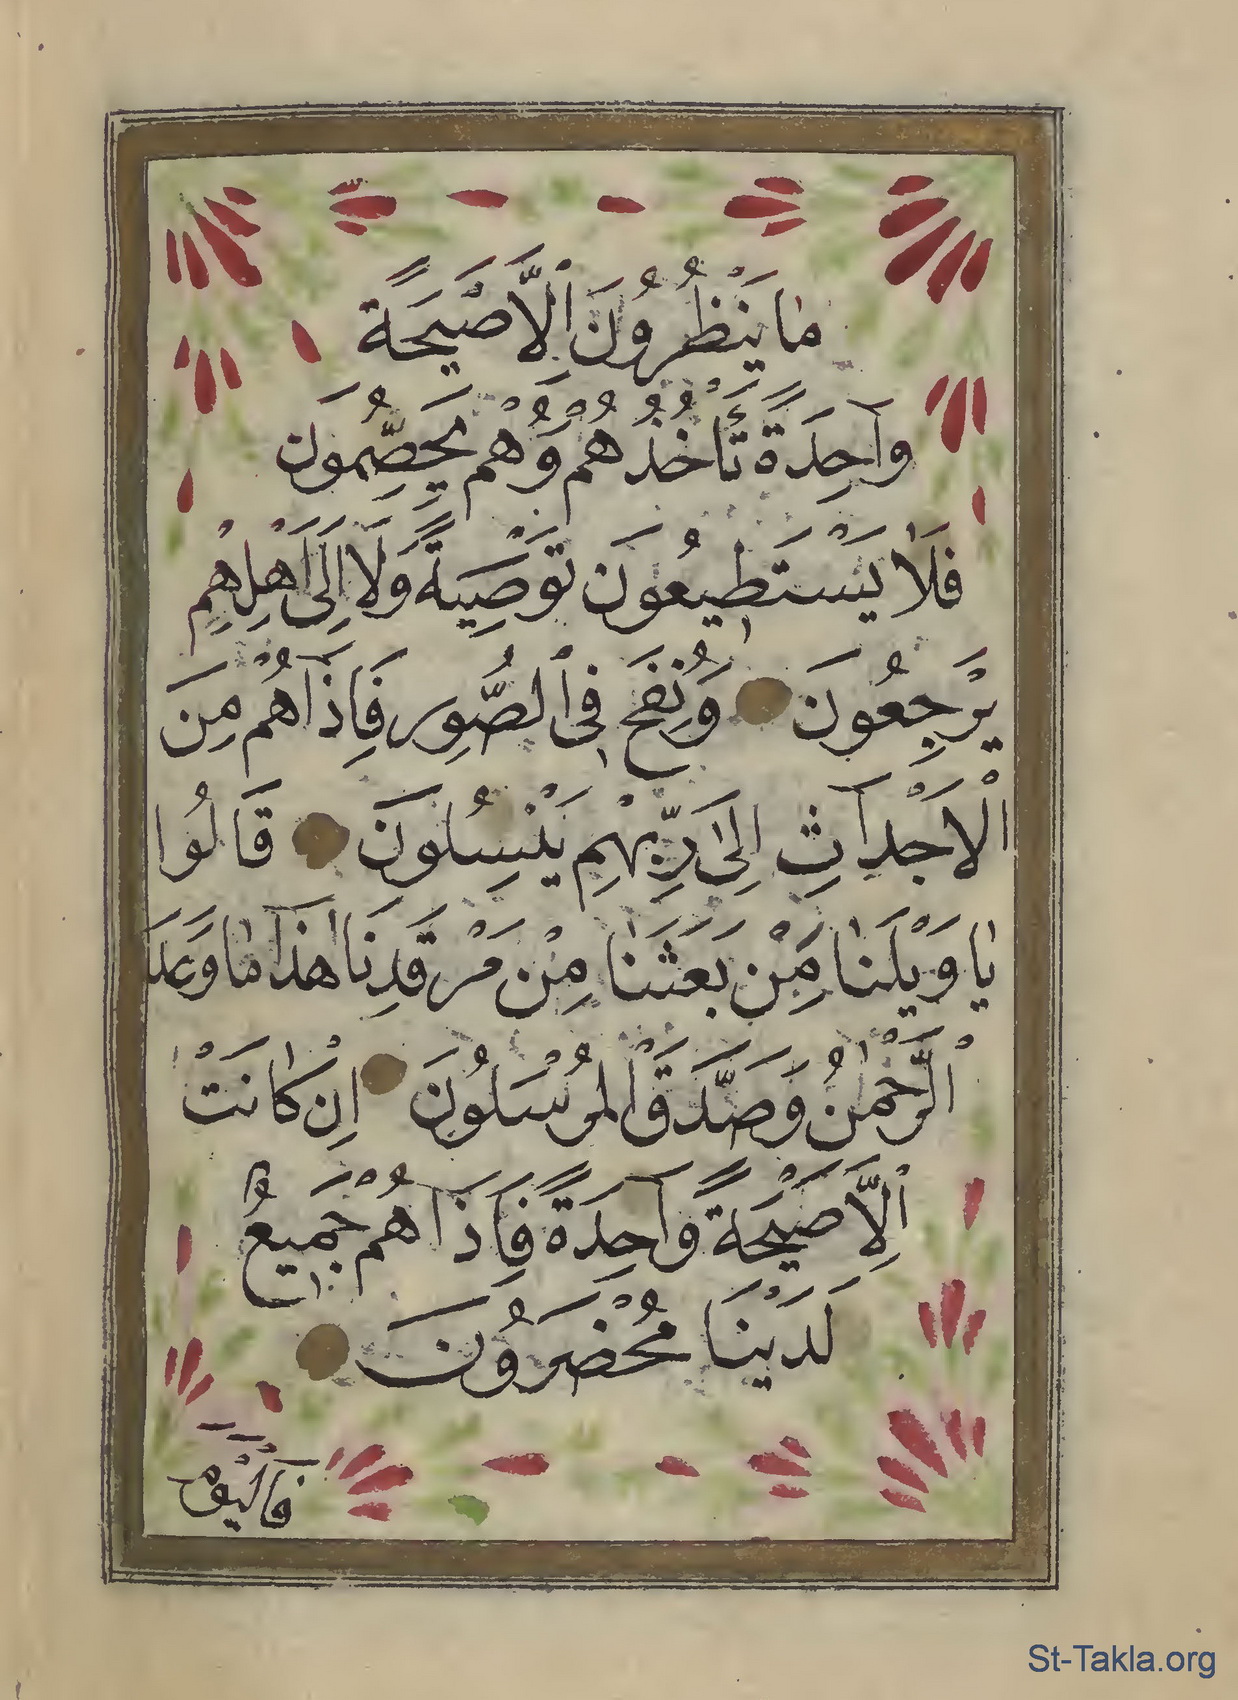 مَا يَنْظُرُونَ اِلَّا صَيْحَةً
وَاحِدَةً تَأْخُذُهُمْ وَهُمْ يَخِصِّمُونَ
فَلَا يَسْتَطِيعُونَ تَوْصِيَةً وَلَا اِلَى اَهْلِهِمْ
يَرْجِعُونَ وَنُفِخَ فِى الصُّورِ فَاِذَا هُمْ مِنَ
الْاَجْدَاثِ اِلَى رَبِّهِمْ يَنْسِلُونَ قَالُوا
يَا وَيْلَنَا مَنْ بَعَثَنَا مِنْ مَرْقَدِنَا هَذَا مَا وَعَدَ
الرَّحْمٰنُ وَصَدَقَ الْمُرْسَلُونَ اِنْ كَانَتْ
اِلَّا صَيْحَةً وَاحِدَةً فَاِذَا هُمْ جَمِيعٌ
لَدَيْنَا مُحْضَرُونَ
فَالْيَوْمَ
St-Takla.org